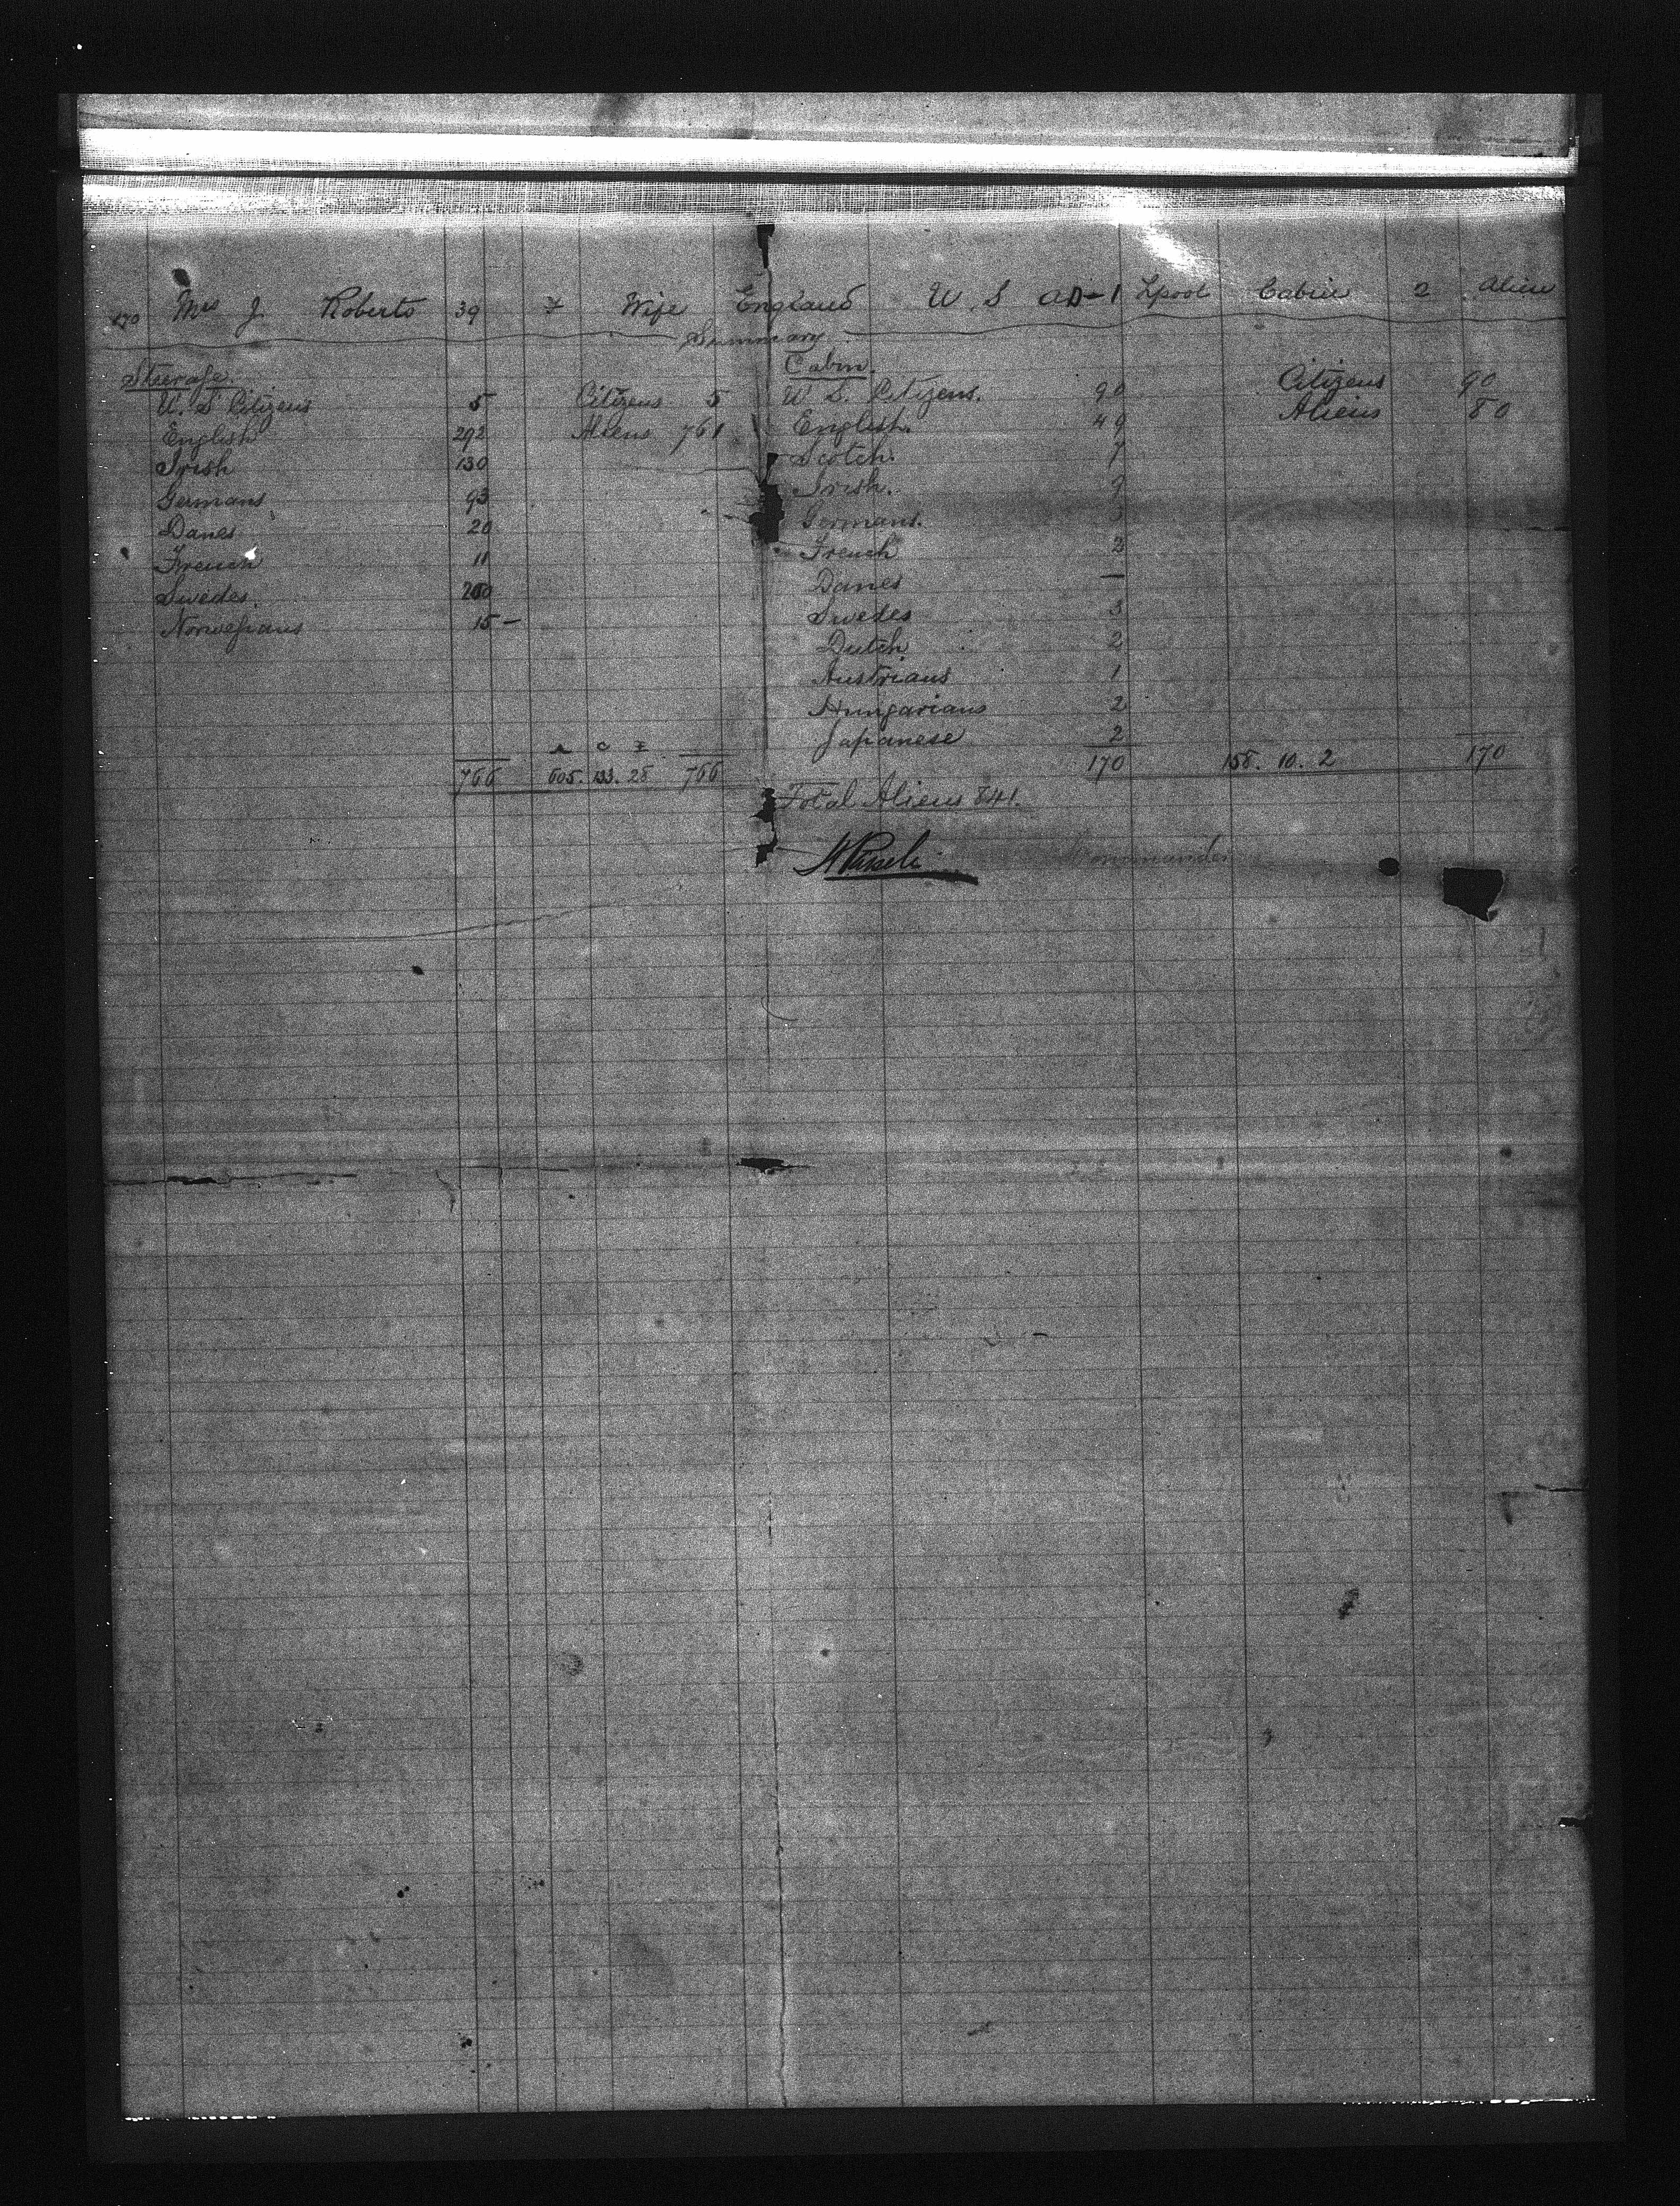 170 Mrs J. Roberts 39 Wife England U.S AD-1 Lpool Cabin 2 Alien
Summary
Steerage.
U. S Citizens 5 Citizens 5
English 292 Aliens 761
Irish 130
Germans 93
Danes 20
French 11
Swedes. 200
Norwegians 15 -
A C I
766 605. 133. 28 766
Cabin.
U S. Citizens. 90 Citizens 90
English. 49 Aliens 80
Scotch. 7
Irish. 9
Germans.
French
Danes —
Swedes 3
Dutch 2
Austrians 1
Hungarians 2
Japanese 2
170 158. 10. 2 170
Total Aliens 841.
Commander